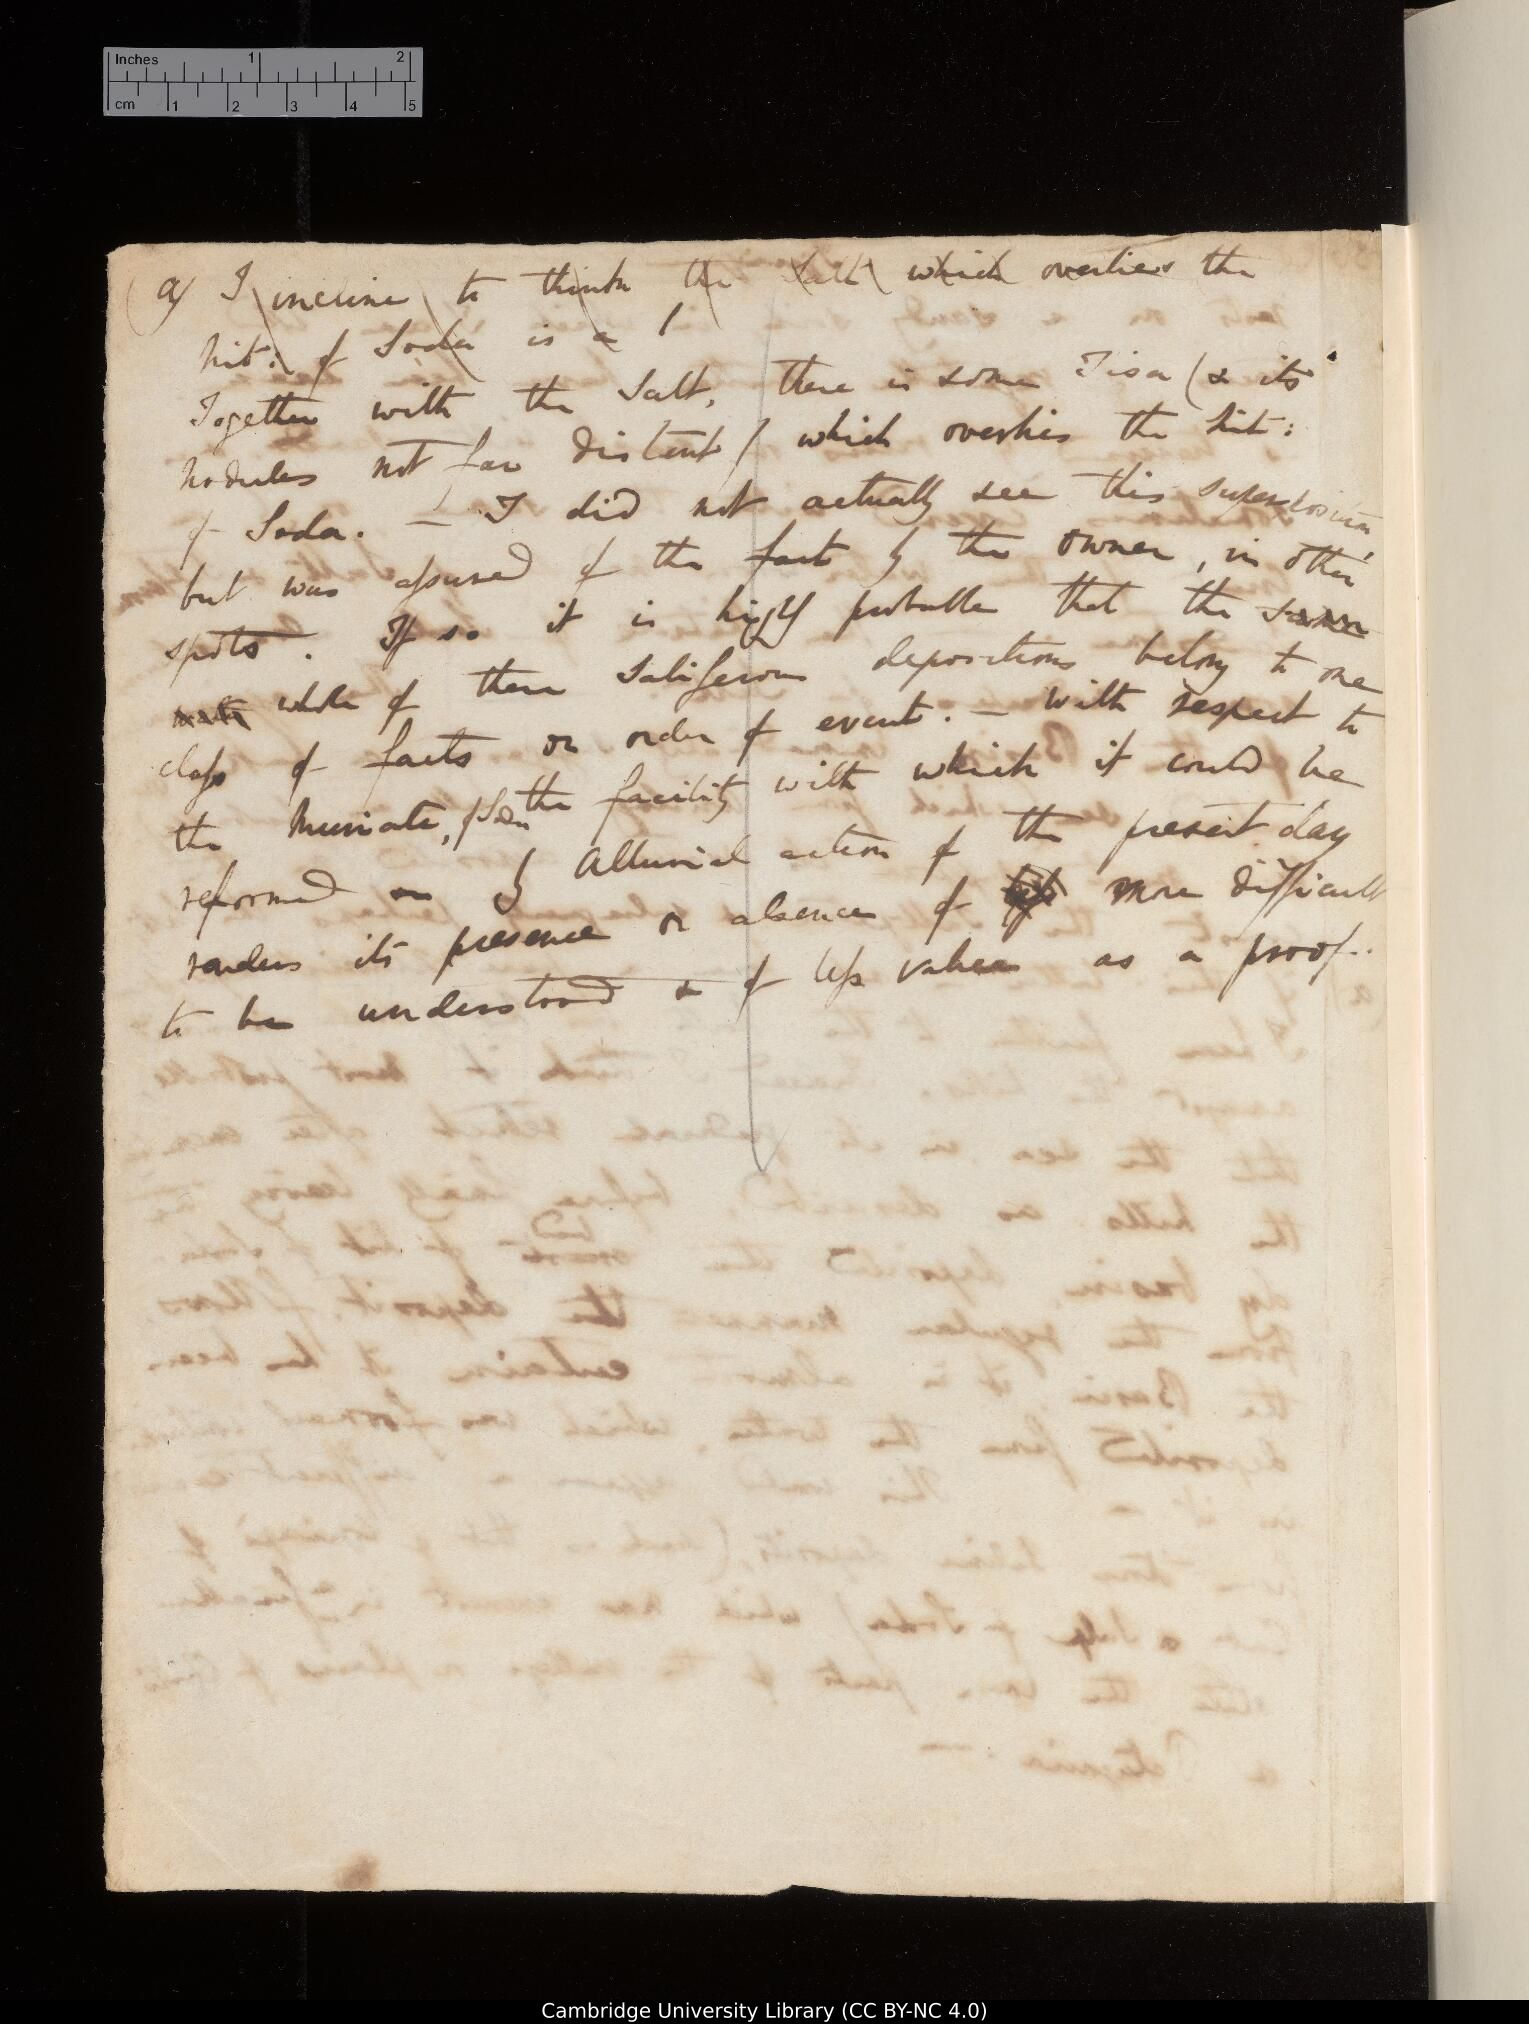 Inches 1 2
cm 1 2 3 4 5
(a) I incline to think the Salt which overlies the
nit: of Soda is a
Together with the Salt, there is some Tisa (& its
nodules not far distant) which overlies the Nit:
of Soda. — I did not actually see this superposition,
but was assured of the fact by the owner, in other
spots. If so it is highly probable that the same
whole of these Saliferous depositions belong to one
class of facts or order of event. — With respect to
the Muriate, of Soda the facility with which it could be
reformed by Alluvial action of the present day
renders its presence or absence of more difficult
to be understood & of less value as a proof.
Cambridge University Library (CC BY-NC 4.0)